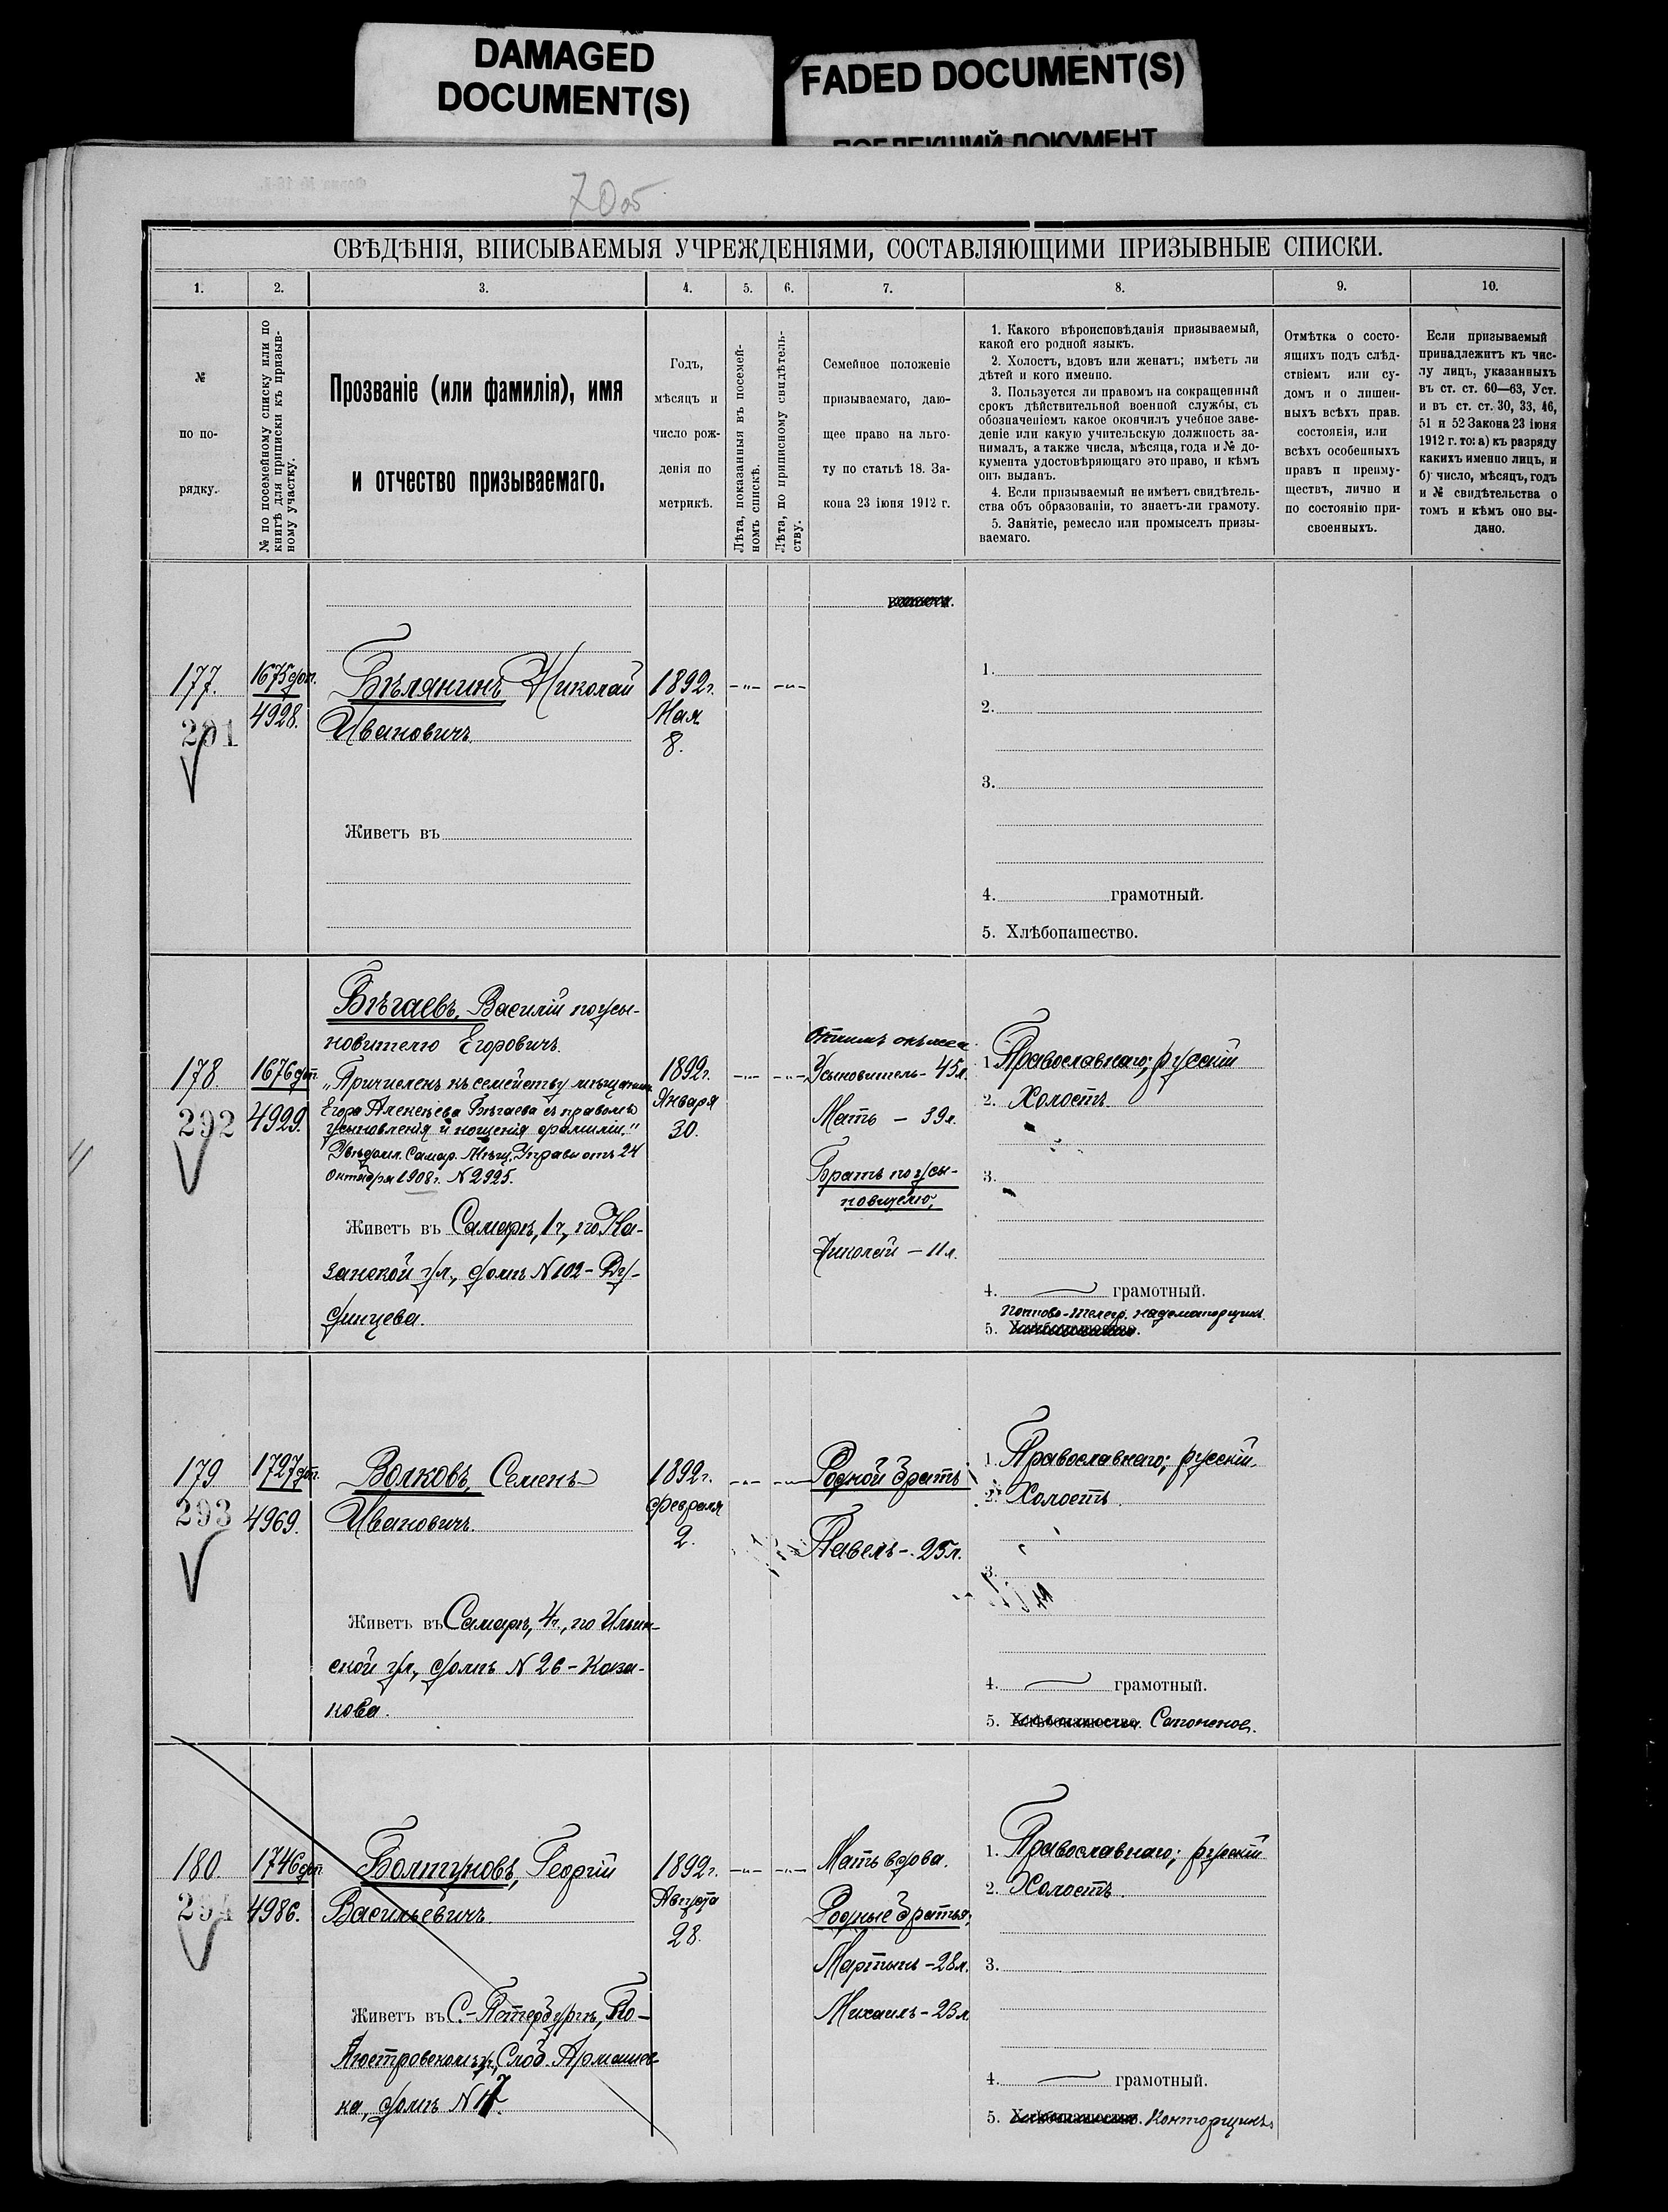 DAMAGED
DOCUMENT(S)
FADED DOCUMENT(S)
ПОБЛЕКШИЙ ДОКУМЕНТ
70об
СВѢДѢНІЯ, ВПИСЫВАЕМЫЯ УЧРЕЖДЕНІЯМИ, СОСТАВЛЯЮЩИМИ ПРИЗЫВНЫЕ СПИСКИ.
1. 2. 3. 4. 5. 6. 7. 8. 9. 10.
№
по по-
рядку.
№ по посемейному списку или по
книгѣ для приписки къ призыв-
ному участку.
Прозваніе (или фамилія), имя
и отчество призываемаго.
Годъ,
мѣсяцъ и
число рож-
денія по
метрикѣ.
Лѣта, показанныя въ посемей-
номъ спискѣ.
Лѣта, по приписному свидѣтель-
ству.
Семейное положеніе
призываемаго, даю-
щее право на льго-
ту по статьѣ 18. За-
кона 23 іюня 1912 г.
1. Какого вѣроисповѣданія призываемый,
какой его родной языкъ.
2. Холостъ, вдовъ или женатъ; имѣетъ ли
дѣтей и кого именно.
3. Пользуется ли правомъ на сокращенный
срокъ дѣйствительной военной службы, съ
обозначеніемъ какое окончилъ учебное заве-
деніе или какую учительскую должность за-
нималъ, а также числа, мѣсяца, года и № до-
кумента удостовѣряющаго это право, и кѣмъ
онъ выданъ.
4. Если призываемый не имѣетъ свидѣтель-
ства объ образованіи, то знаетъ-ли грамоту.
5. Занятіе, ремесло или промыселъ призы-
ваемаго.
Отмѣтка о состо-
ящихъ подъ слѣд-
ствіемъ или су-
домъ и о лишен-
ныхъ всѣхъ прав.
состоянія, или
всѣхъ особенныхъ
правъ и преиму-
ществъ, лично и
по состоянію при-
своенныхъ.
Если призываемый
принадлежитъ къ чис-
лу лицъ, указанныхъ
въ ст. ст. 60—63, Уст.
и въ ст. ст. 30, 33, 46,
51 и 52 Закона 23 іюня
1912 г. то: а) къ разряду
какихъ именно лицъ, и
б) число, мѣсяцъ, годъ
и № свидѣтельства о
томъ и кѣмъ оно вы-
дано.
177.
291
1675 доп.
4928.
Бѣлянинъ Николай
Ивановичъ.
Живетъ въ
1892 г.
Мая
8.
1.
2.
3.
4. грамотный.
5. Хлѣбопашество.
178
292
1676 доп.
4929.
Бѣгаевъ, Василій по усы-
новителю Егоровичъ.
„Причисленъ къ семейству мѣщанина
Егора Алексѣева Бѣгаева съ правомъ
усыновленія и ношенія фамиліи."
Увѣдомл. Самар. Мѣщ. Управы отъ 24
Октября 1908 г. № 2995.
Живетъ въ Самарѣ, 1 ч., по Ка-
занской ул., домъ № 102 - Ду-
динцева.
1892 г.
Января
30.
Усыновитель - 45 л.
Мать - 39 л.
Братъ по усы-
новителю,
Николай - 11 л.
1. Православнаго; русскій
2. Холостъ.
3.
4. грамотный.
Почтово-телегр. надсмотрщикъ.
5. Хлѣбопашество.
179
293
1727 доп.
4969.
Волковъ, Семенъ
Ивановичъ.
Живетъ въ Самарѣ, 4 ч., по Ильин-
ской ул., домъ № 26 - Каза-
кова.
1892 г.
Февраля
2.
Родной братъ
Павелъ - 25 л.
1. Православнаго; русскій.
2. Холостъ.
3.
4. грамотный.
5. Хлѣбопашество.
180.
294
1746 доп.
4986.
Болтуновъ, Георгій
Васильевичъ.
Живетъ въ С.-Петербургѣ, По-
люстровском уч., Слоб.
на, домъ № 17.
1892 г.
Августа
28.
Мать вдова.
Родные братья:
Мартынъ - 28 л.
Михаилъ - 23 л.
1. Православнаго; русскій
2. Холостъ.
3.
4. грамотный.
5. Хлѣбопашество. Конторщикъ.